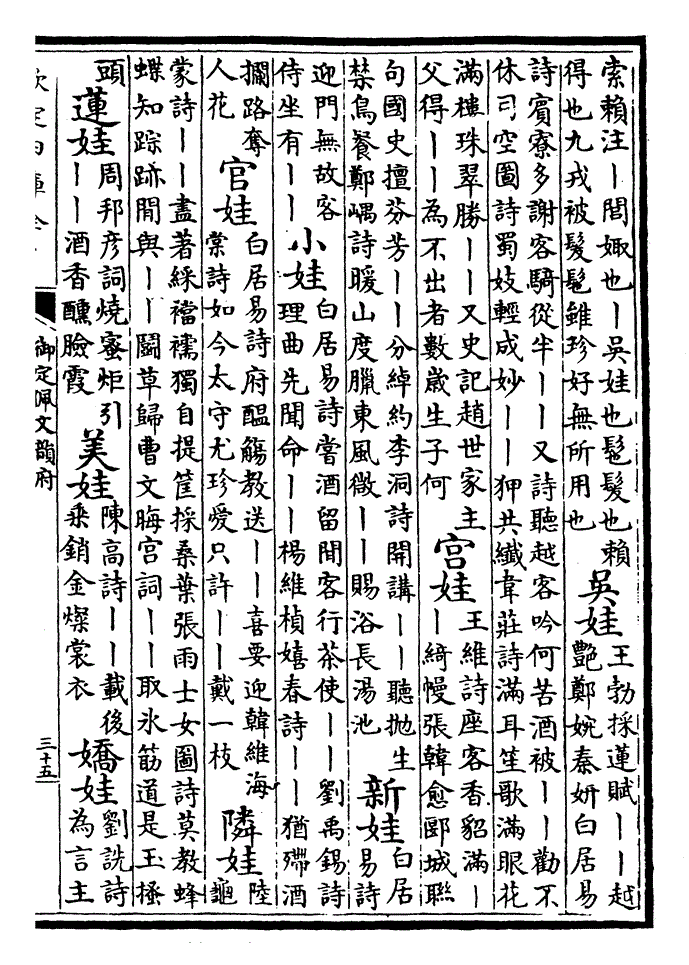 索賴注丨閭娵也丨吳娃也髢髮也賴
得也九戎被髮髢鮏珍好無所用也
吳娃
王勃採蓮賦丨丨越
艷鄭婉秦妍白居易
詩賓寮多謝客騎從半丨丨又詩聽越客吟何苦酒被丨丨勸不
休司空圖詩蜀妓輕成妙丨丨狎共纖韋莊詩滿耳笙歌滿眼花
滿樓珠翠勝丨丨又史記趙世家主
父得丨丨為不出者數歲生子何
宮娃
王維詩座客香貂滿丨
丨綺幔張韓愈郾城聯
句國史擅芬芳丨丨分綽約李洞詩開講丨丨聽抛生
禁鳥餐鄭嵎詩暖山度臘東風微丨丨賜浴長湯池
新娃
白居
易詩
迎門無故客
侍坐有丨丨
小娃
白居易詩嘗酒留閒客行茶使丨丨劉禹錫詩
理曲先聞命丨丨楊維楨嬉春詩丨丨猶殢酒
攔路奪
人花
官娃
白居易詩府醞觴教送丨丨喜要迎韓維海
棠詩如今太守尤珍愛只許丨丨戴一枝
隣娃
陸
龜
蒙詩丨丨盡著綵襠襦獨自提筐採桑葉張雨士女圖詩莫教蜂
蝶知踪跡閒與丨丨鬭草歸曹文晦宮詞丨丨取氷筋道是玉搔
頭
蓮娃
周邦彥詞燒蜜炬引
丨丨酒香醺臉霞
美娃
陳高詩丨丨載後
乗銷金燦裳衣
嬌娃
劉詵詩
為言主
御定佩文韻府
三十五